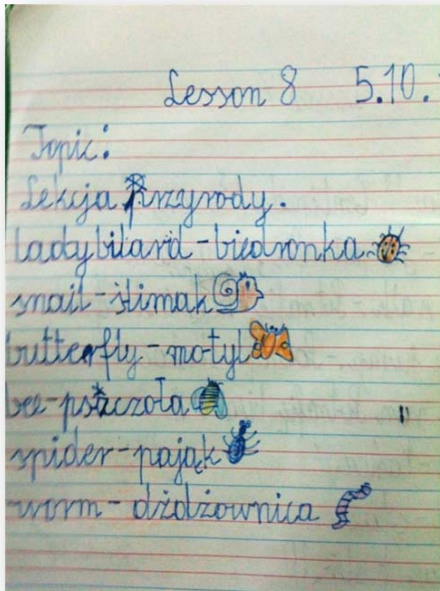 Lesson 8 5.10.
Topic:
Lekcja Przyrody.
ladybilard - biedronka
snail - ślimak
butterfly - motyl
bee - pszczoła
spider - pająk
worm - dżdżownica